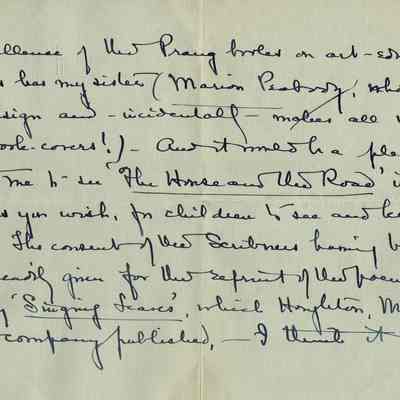 ellence of the Prang books on art-edu
s has my sister (Marion Peabody, who
sign and - incidentally - makes all
ook-covers!) - And it would be a plea
me to see 'The House and the Road' i
as you wish, for children to see and
The consent of the Scribners having b
eadily given for the reprint of the poem
'Singing Leaves', which Houghton, M
company published, - I think it